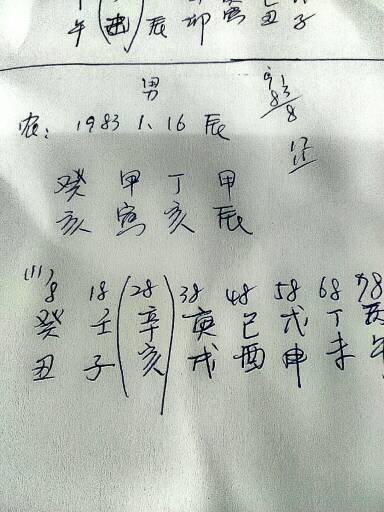 午 丑 辰 卯 寅 丑 子
男
农: 1983 1. 16 辰
癸 甲 丁 甲
亥 寅 亥 辰
8 18 (28 38 48 58 68 78
癸 壬 辛 庚 己 戊 丁 丙
丑 子 亥) 戌 酉 申 未 午